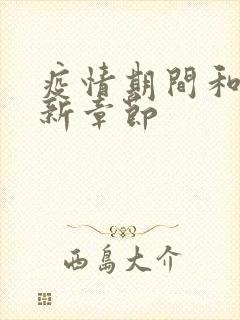 疫情期間和
新章節
西島大介